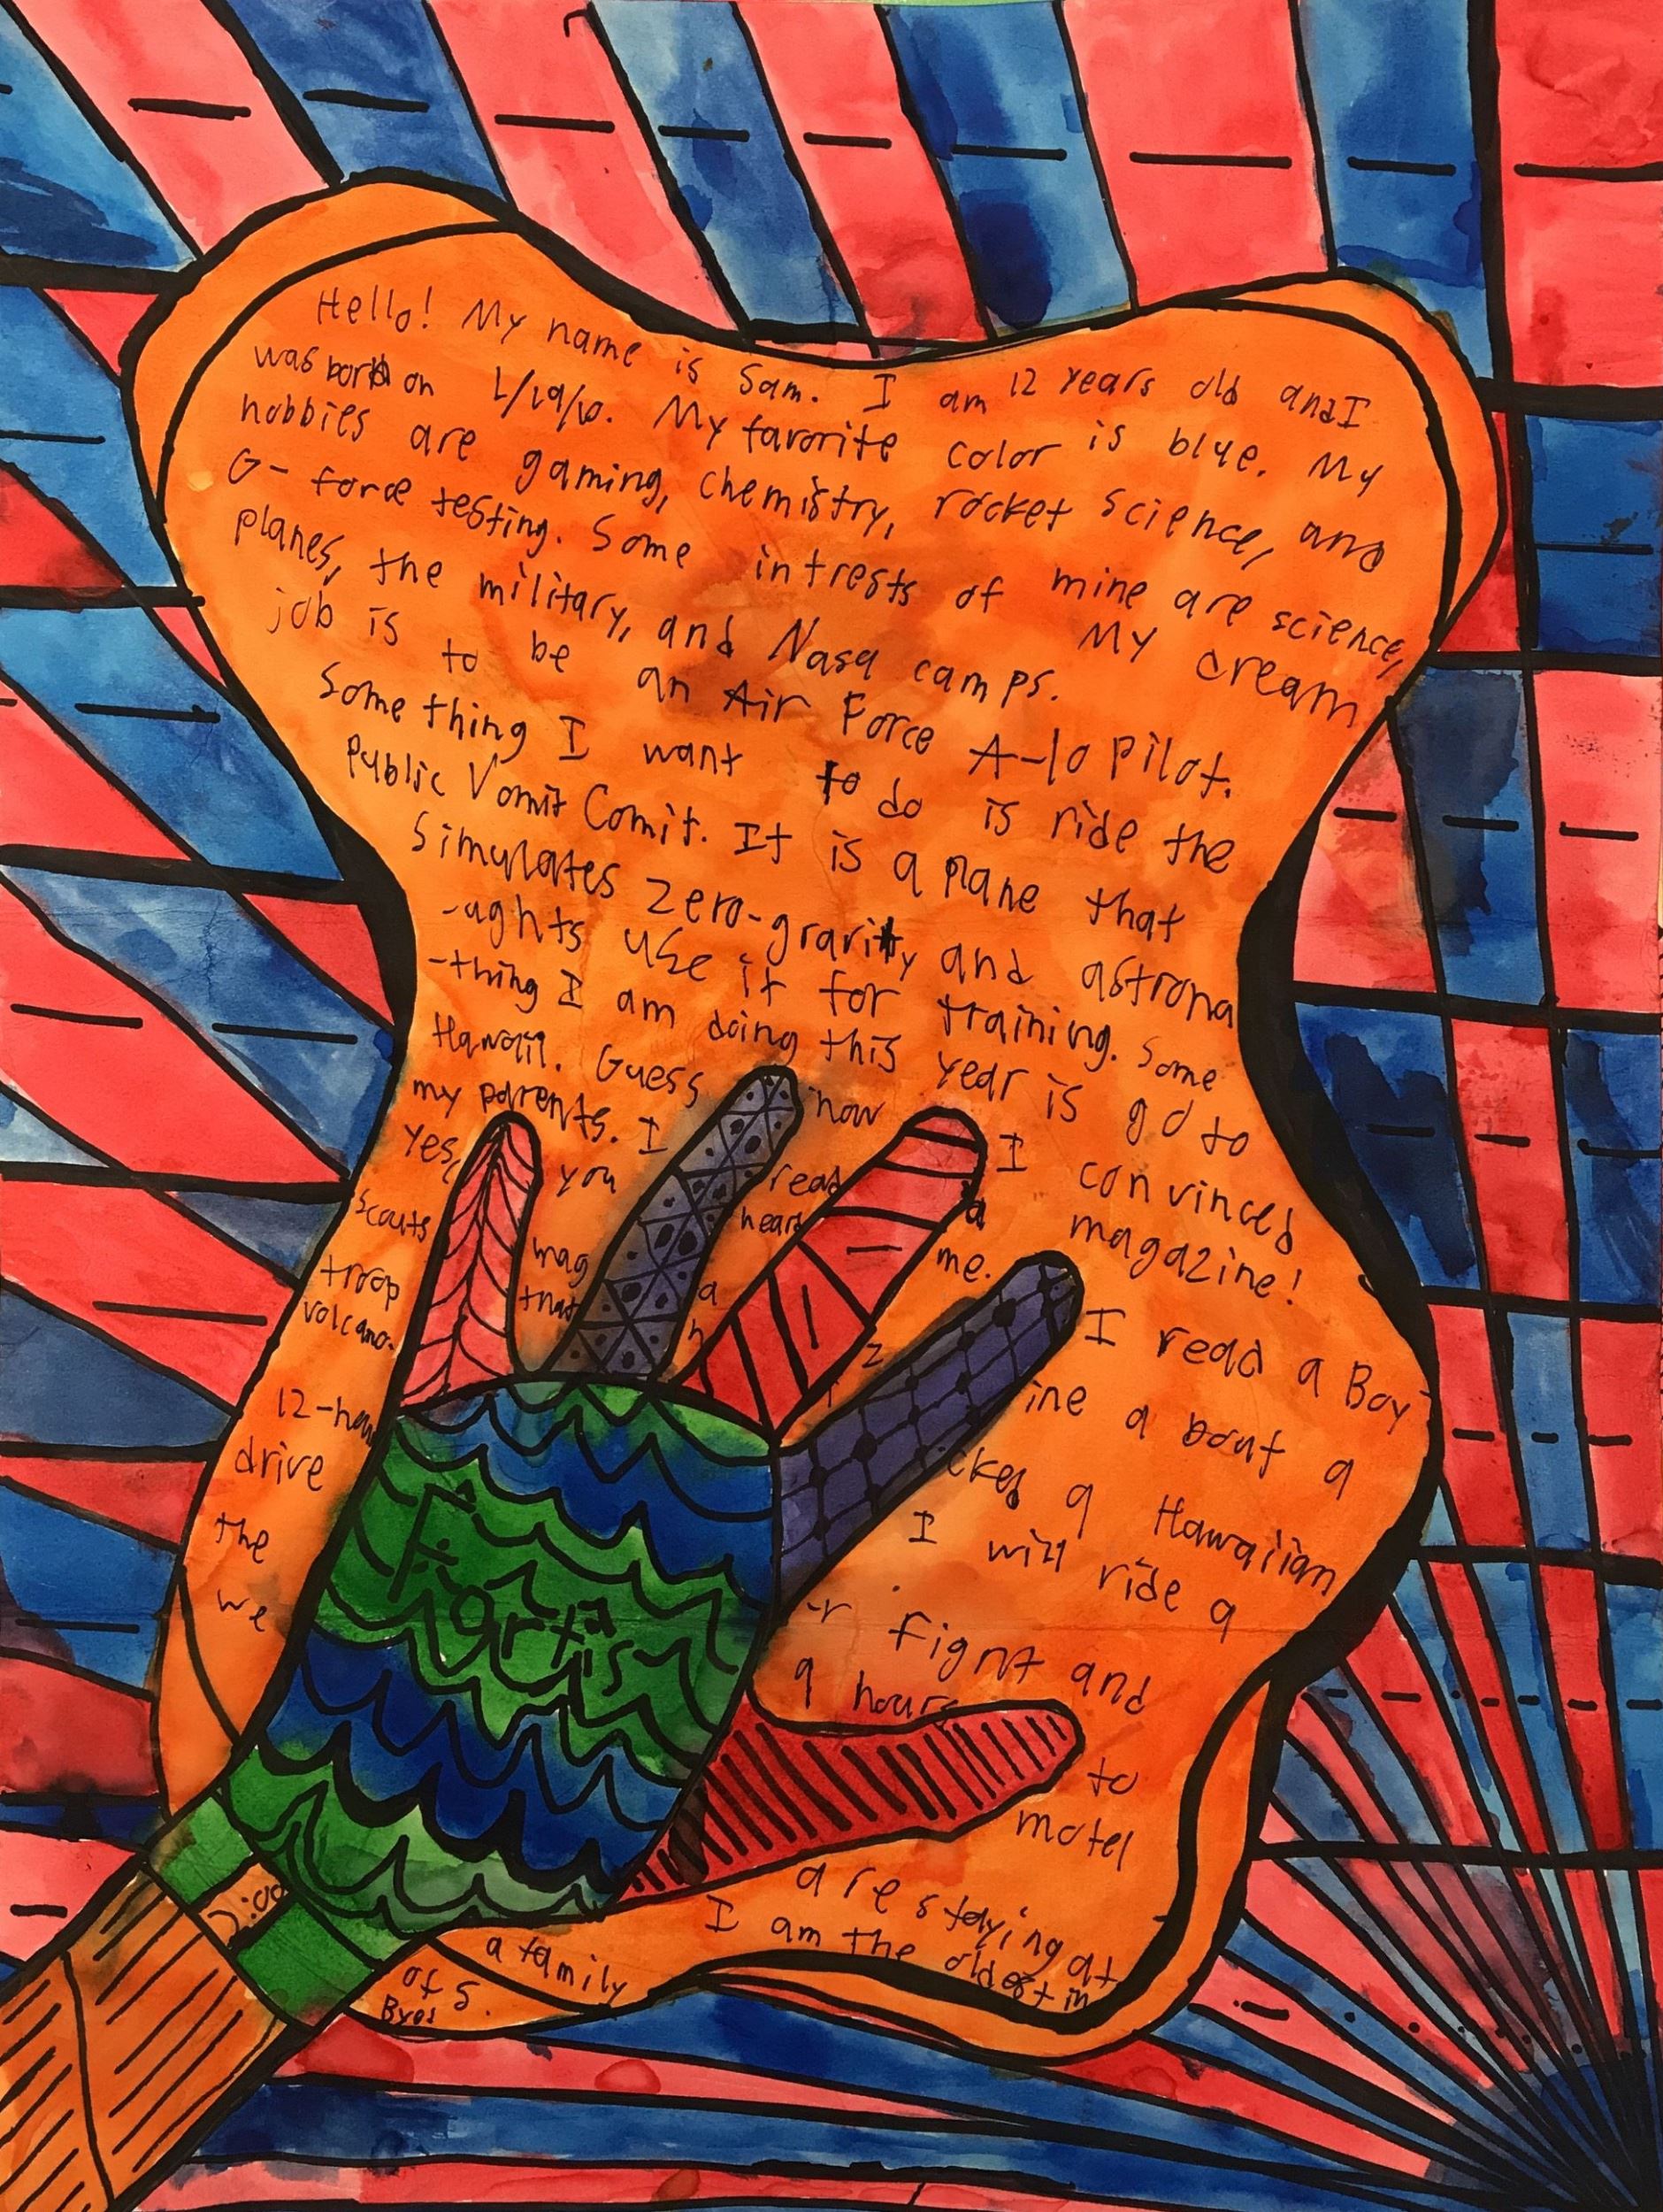 Hello! My name is Sam. I am 12 years old and I
was born on 1/19/10. My favorite color is blue. My
hobbies are gaming, chemistry, rocket science, and
G-force testing. Some intrests of mine are science,
planes, the military, and Nasa camps. My dream
job is to be an Air Force A-10 Pilot.
Something I want to do is ride the
Public Vomit Comit. It is a plane that
simulates zero-gravity and astrona
-ughts use it for training. Some
-thing I am doing this year is go to
Hawaii. Guess how I convinced
my parents. I read a magazine!
Yes, you heard me. I read a Boy
scouts mag a z ine about a
troop that h i cked a Hawaiian
volcano. I will ride a
12-hou -r flight and
drive 9 hours to
the motel
we are staying at
I am the oldest in
a family
of 5.
Byes
Fortis